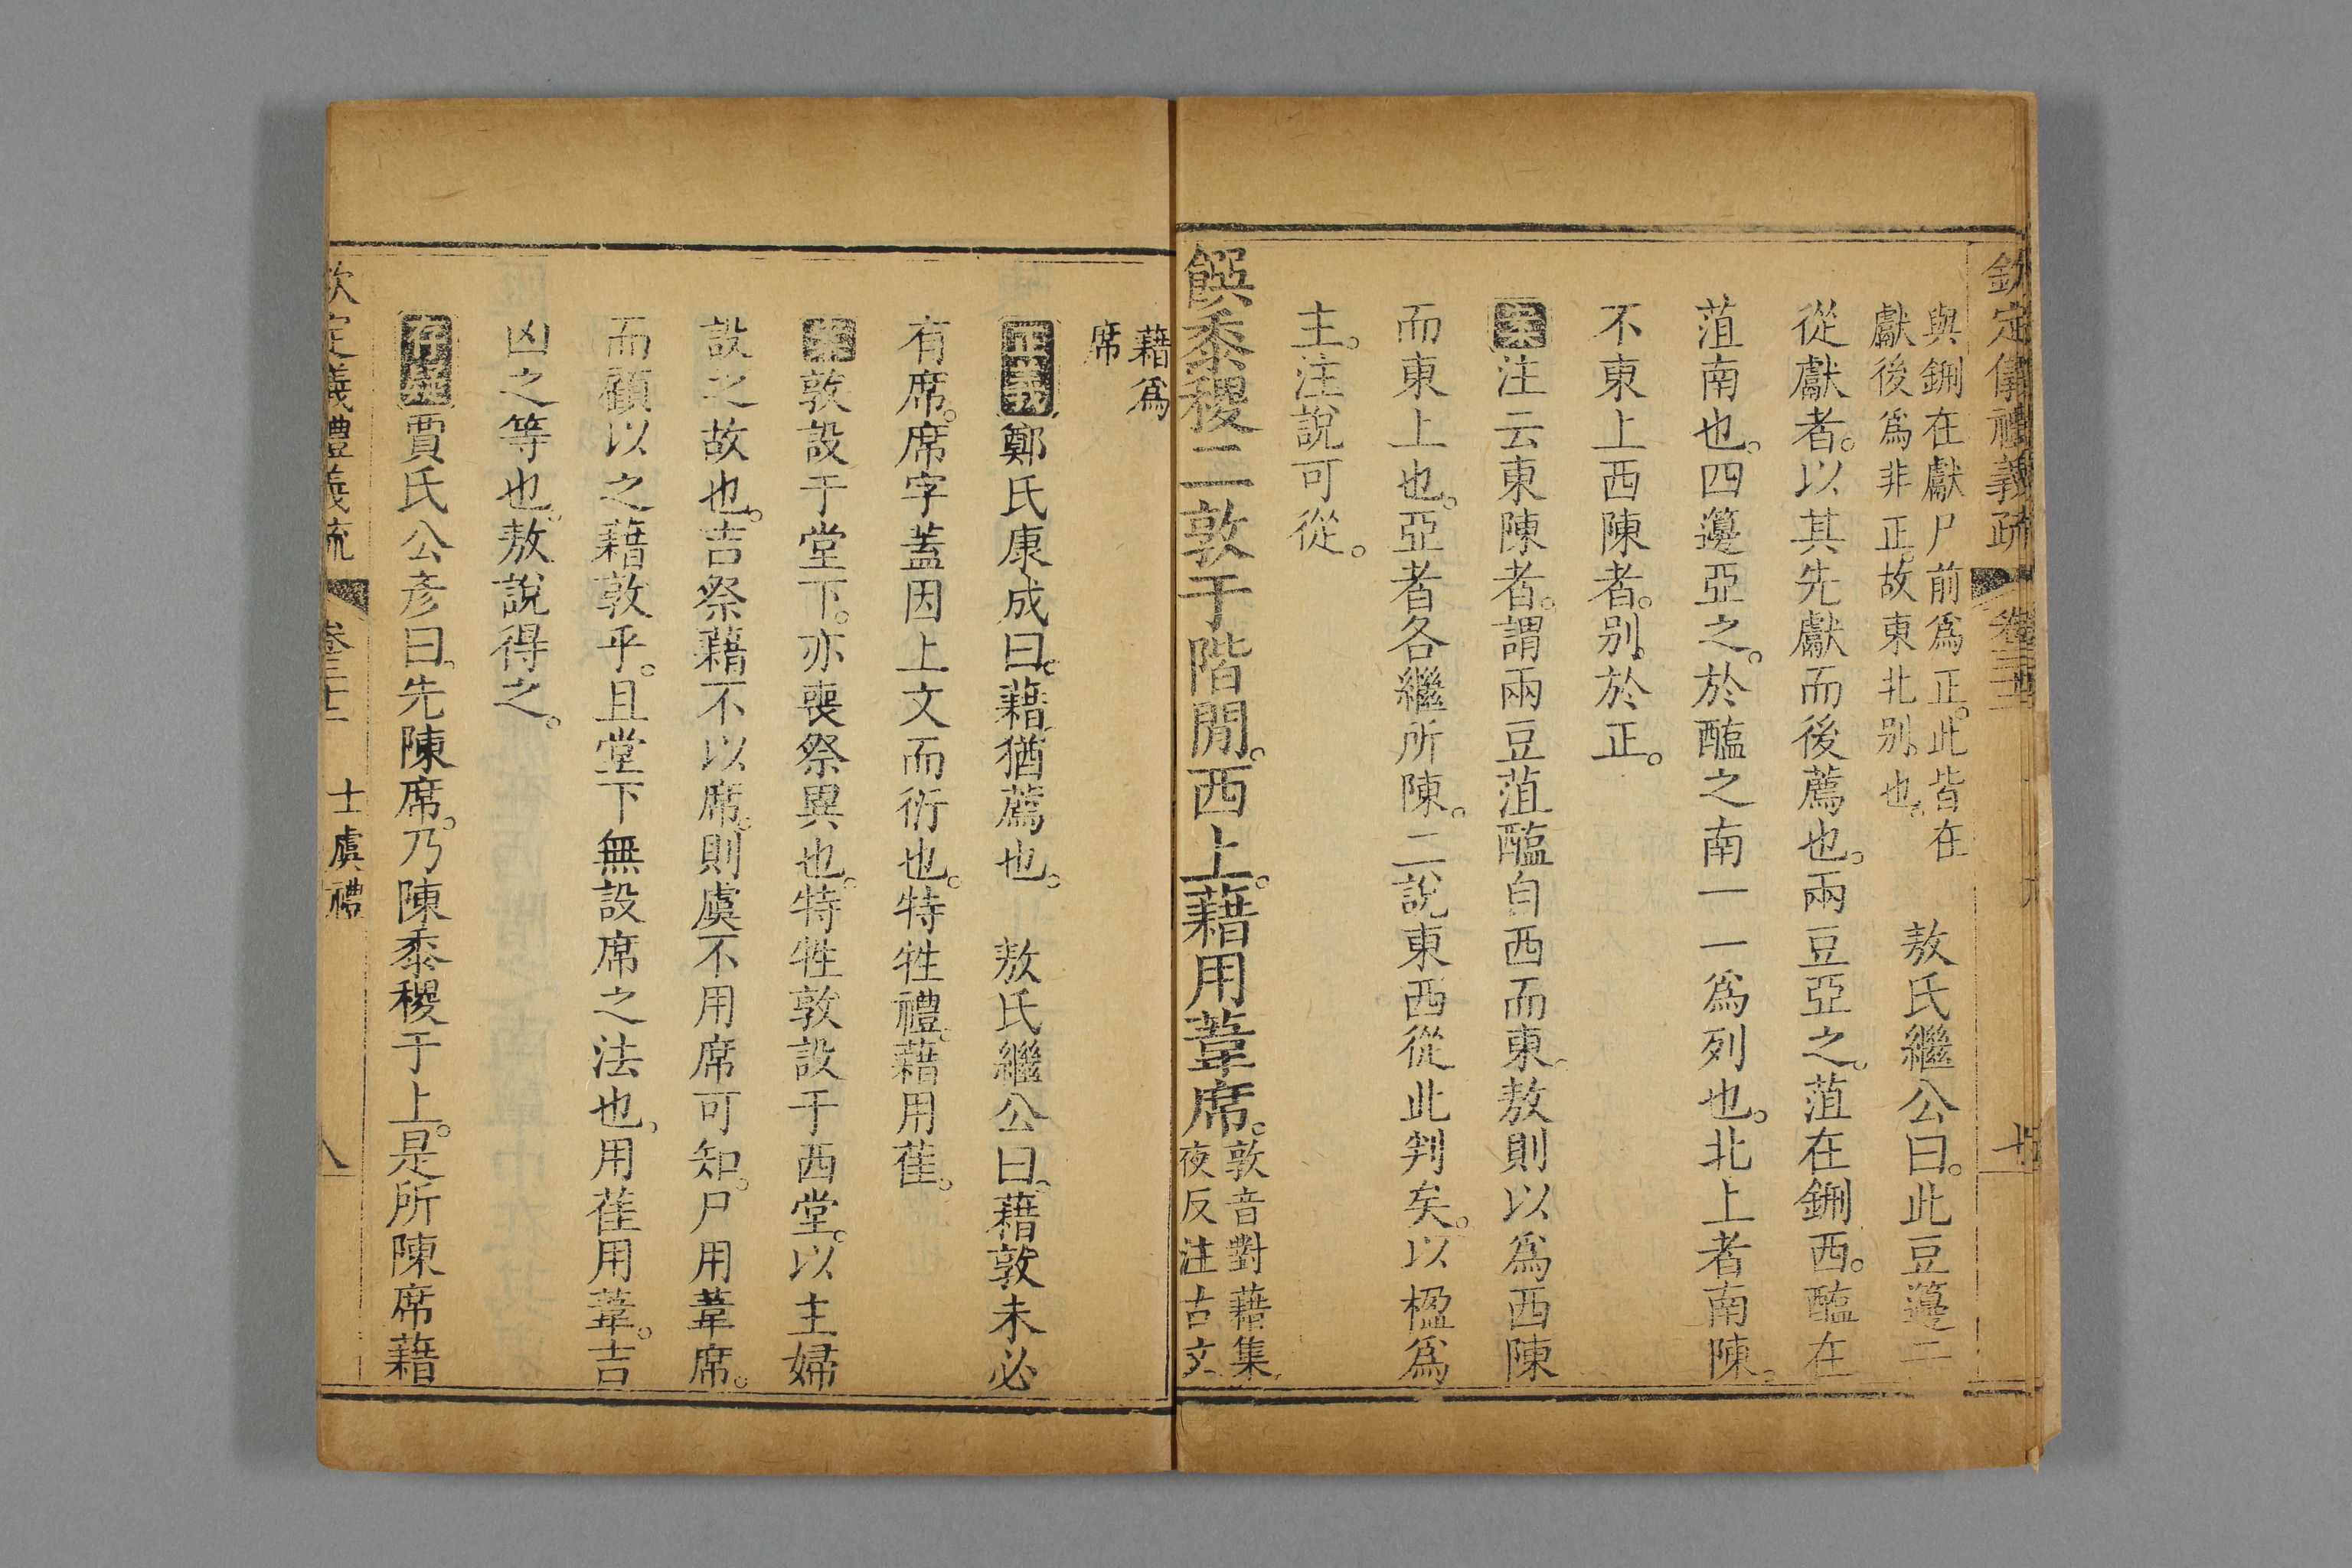 欽定儀禮義疏 卷三十二
與鉶在獻尸前爲正。此皆在
獻後爲非正。故東北别也。
敖氏繼公曰。此豆籩二
從獻者。以其先獻而後薦也。兩豆亞之。菹在鉶西。醢在
菹南也。四籩亞之。於醢之南一一爲列也。北上者南陳。
不東上西陳者。别於正。
案注云東陳者。謂兩豆菹醢自西而東。敖則以爲西陳
而東上也。亞者各繼所陳。二說東西從此判矣。以楹爲
主。注說可從。
饌黍稷二敦于階閒。西上。藉用葦席。
敦音對藉集
夜反注古文
藉爲
席
正義鄭氏康成曰。藉猶薦也。 敖氏繼公曰。藉敦未必
有席。席字蓋因上文而衍也。特牲禮。藉用萑。
案敦設于堂下。亦喪祭異也。特牲敦設于西堂。以主婦
設之故也。吉祭藉不以席。則虞不用席可知。尸用葦席。
而顧以之藉敦乎。且堂下無設席之法也。用萑用葦。吉
凶之等也。敖說得之。
存疑賈氏公彥曰。先陳席。乃陳黍稷于上。是所陳席藉
欽定義禮義疏 卷三十二 士虞禮 八